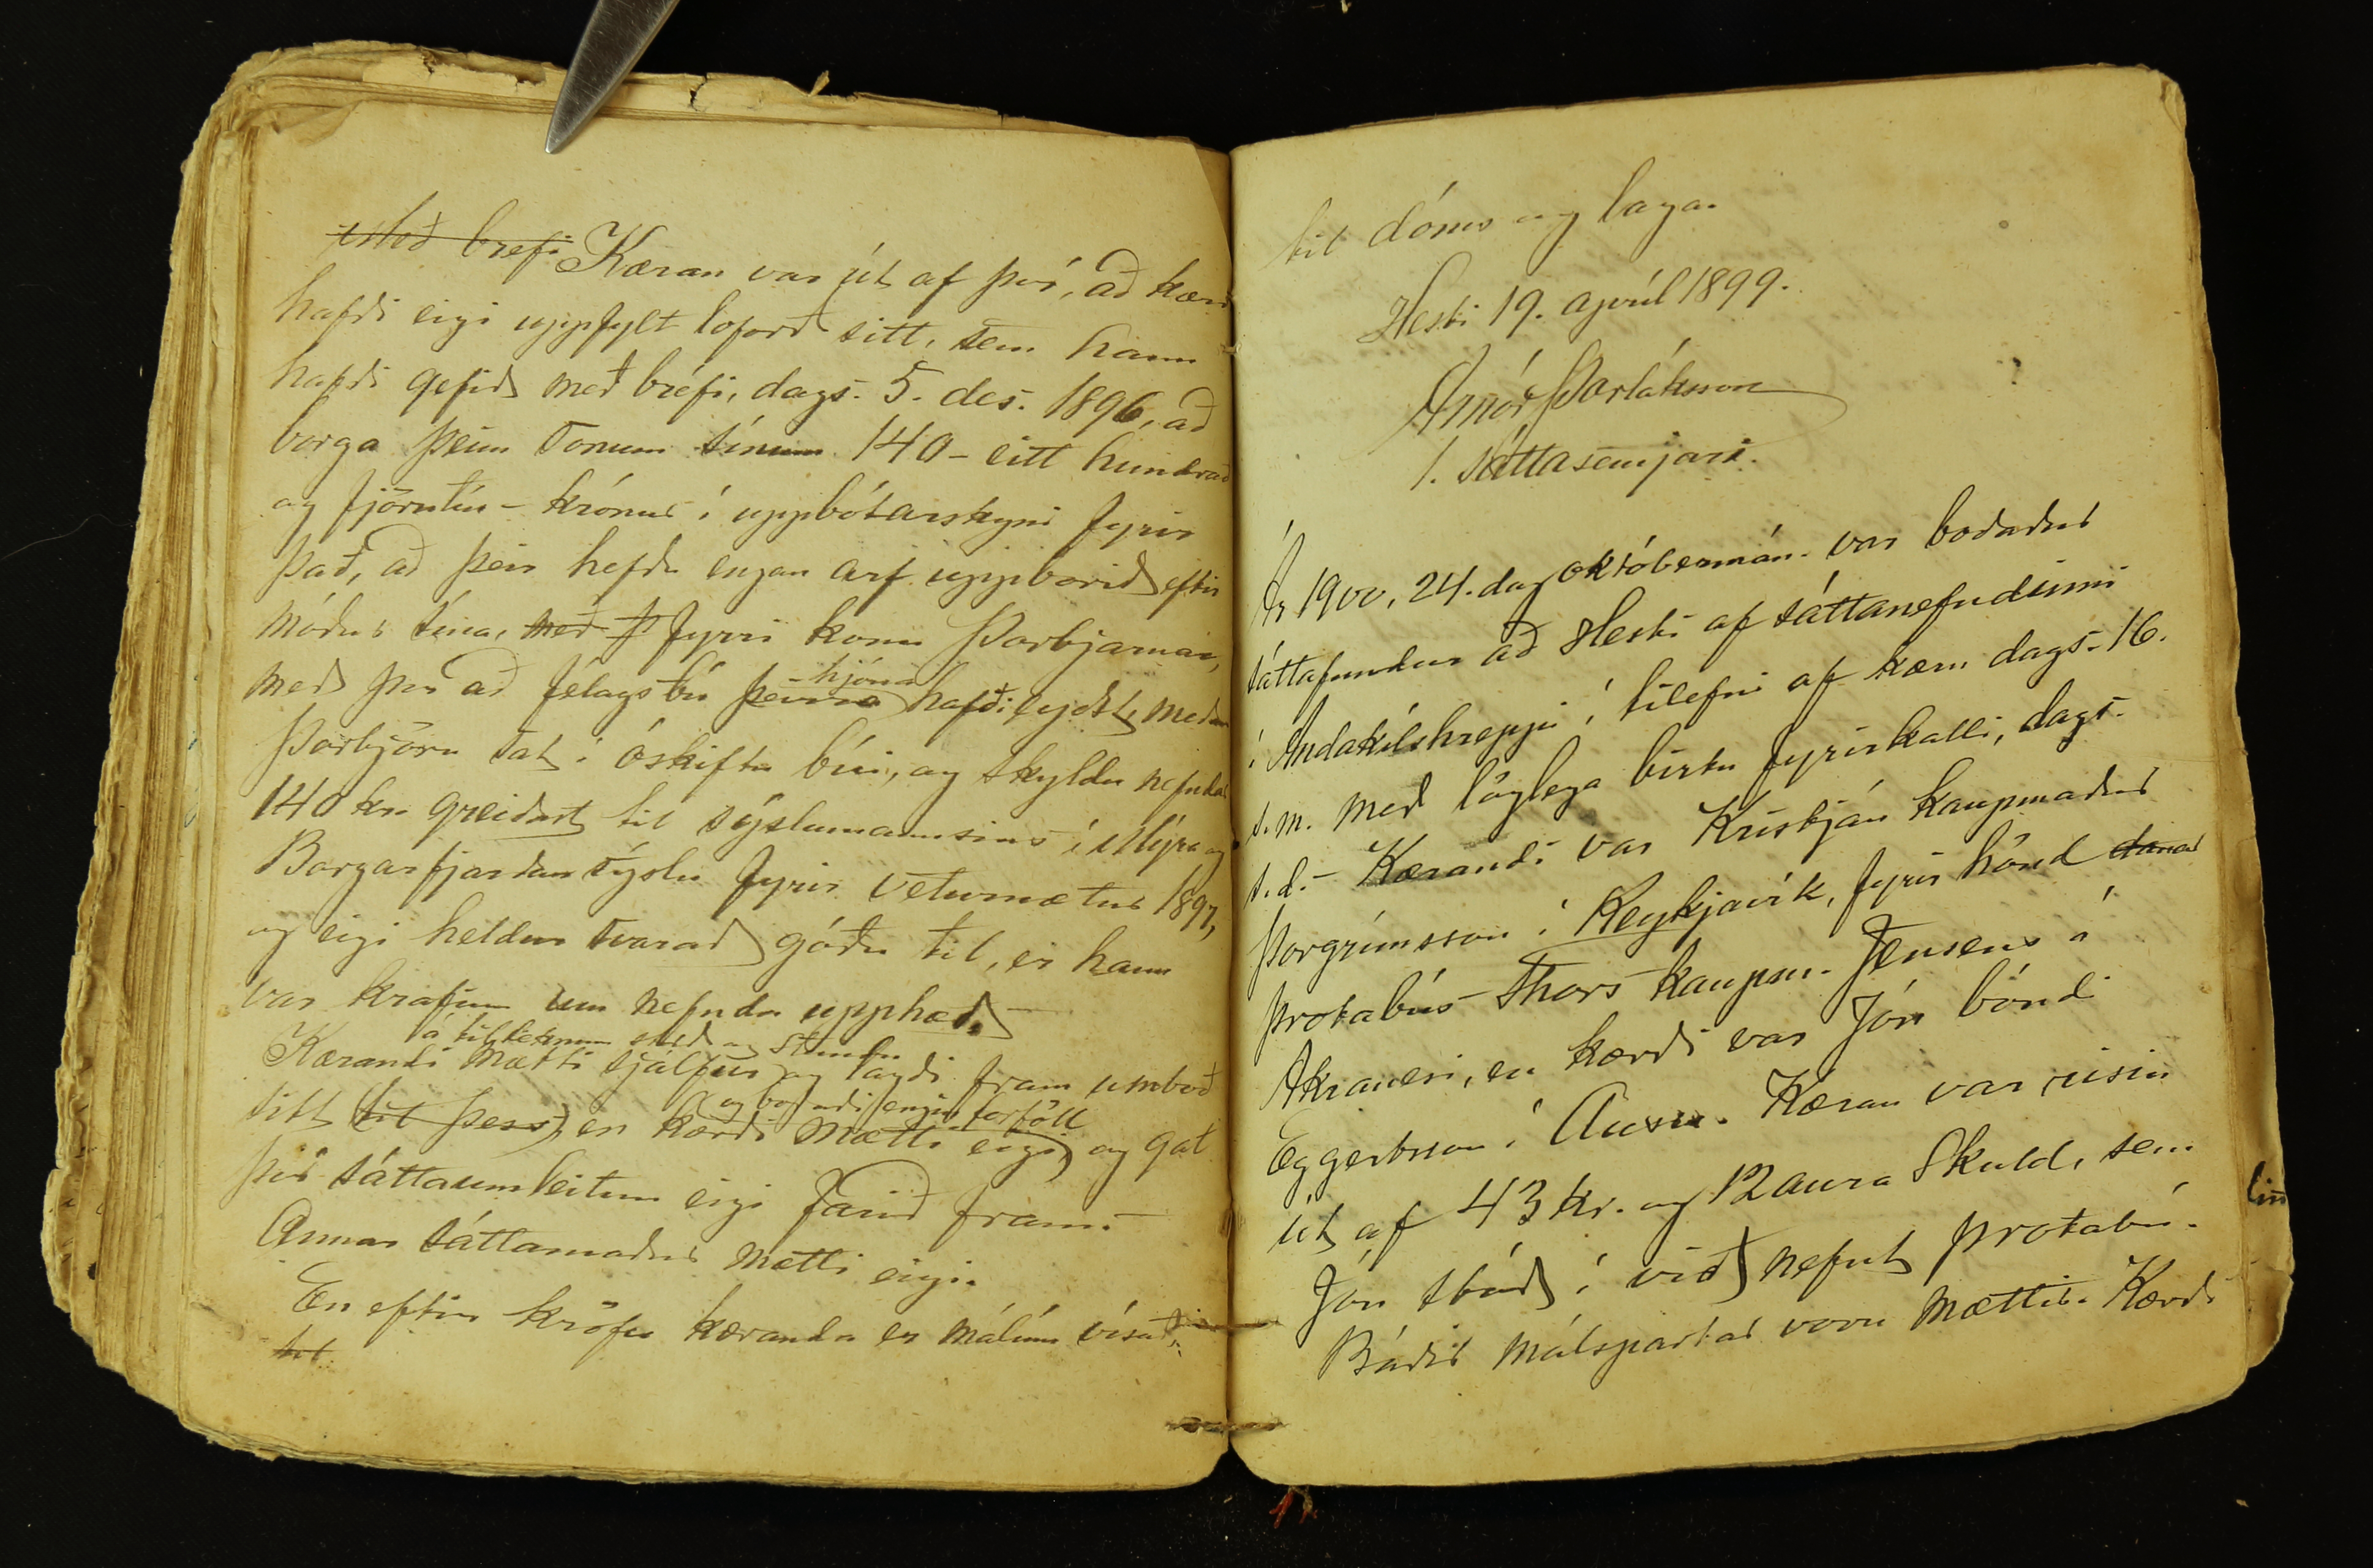 Með brefi Kæran var út af því, að kærði
hafði eigi uppfylt loforð sitt, sem hann
hafði gefið með bréfi, dags. 5. des. 1896, að
borga þeim sonum sínum 140 - eitt hundrað
og fjörutíu - krónur í uppbótarskyni fyrir
það, að þeir hefðu engan arf uppborið eftir
móður sína, með þ fyrri konu Þorbjarnar,
með því að félagsbú þeirra hjóna hafði eyðst, meðan
Þorbjörn sat í óskiftu búi, og skyldu nefndar
140 kr. greiðast til sýslumannsins í Mýra og
Borgarfjarðarsýslu fyrir veturnætur 1897,
og eigi heldur svarað góðu til, er hann
var krafinn um nefnda upphæð. -
á tilteknum stað og stundu
Kærandi mætti sjálfur og lagði fram umboð
og boðaði engin forföll
sitt til þess, en kærði mætti eigi, og gat
því sáttaumleitun eigi farið fram. -
Annar sáttamaður mætti eigi.
En eftir kröfu kæranda er málinu vísað
til
til dóms og laga.
Hesti 19. apríl 1899.
Arnór Þorláksson
1. sáttasemjari.
Ár 1900, 24. dag októbermán. var boðaður
sáttafundur að Hesti af sáttanefndinni
í Andakílshreppi í tilefni af kæru dags. 16.
s.m. með löglega birtu fyrirkalli, dags.
s.d. - Kærandi var Kristján kaupmaður
Þorgrímsson í Reykjavík, fyrir hönd dánar
þrotabús Thors kaupm. Jensens á
Akranesi, en kærði var Jón bóndi
Eggertsson í Ausu. Kæran var risin
út af 43 kr. og 12 aura skuld, sem
Jón stóð í við nefnt þrotabú.
Báðir málspartar voru mættir. Kærði